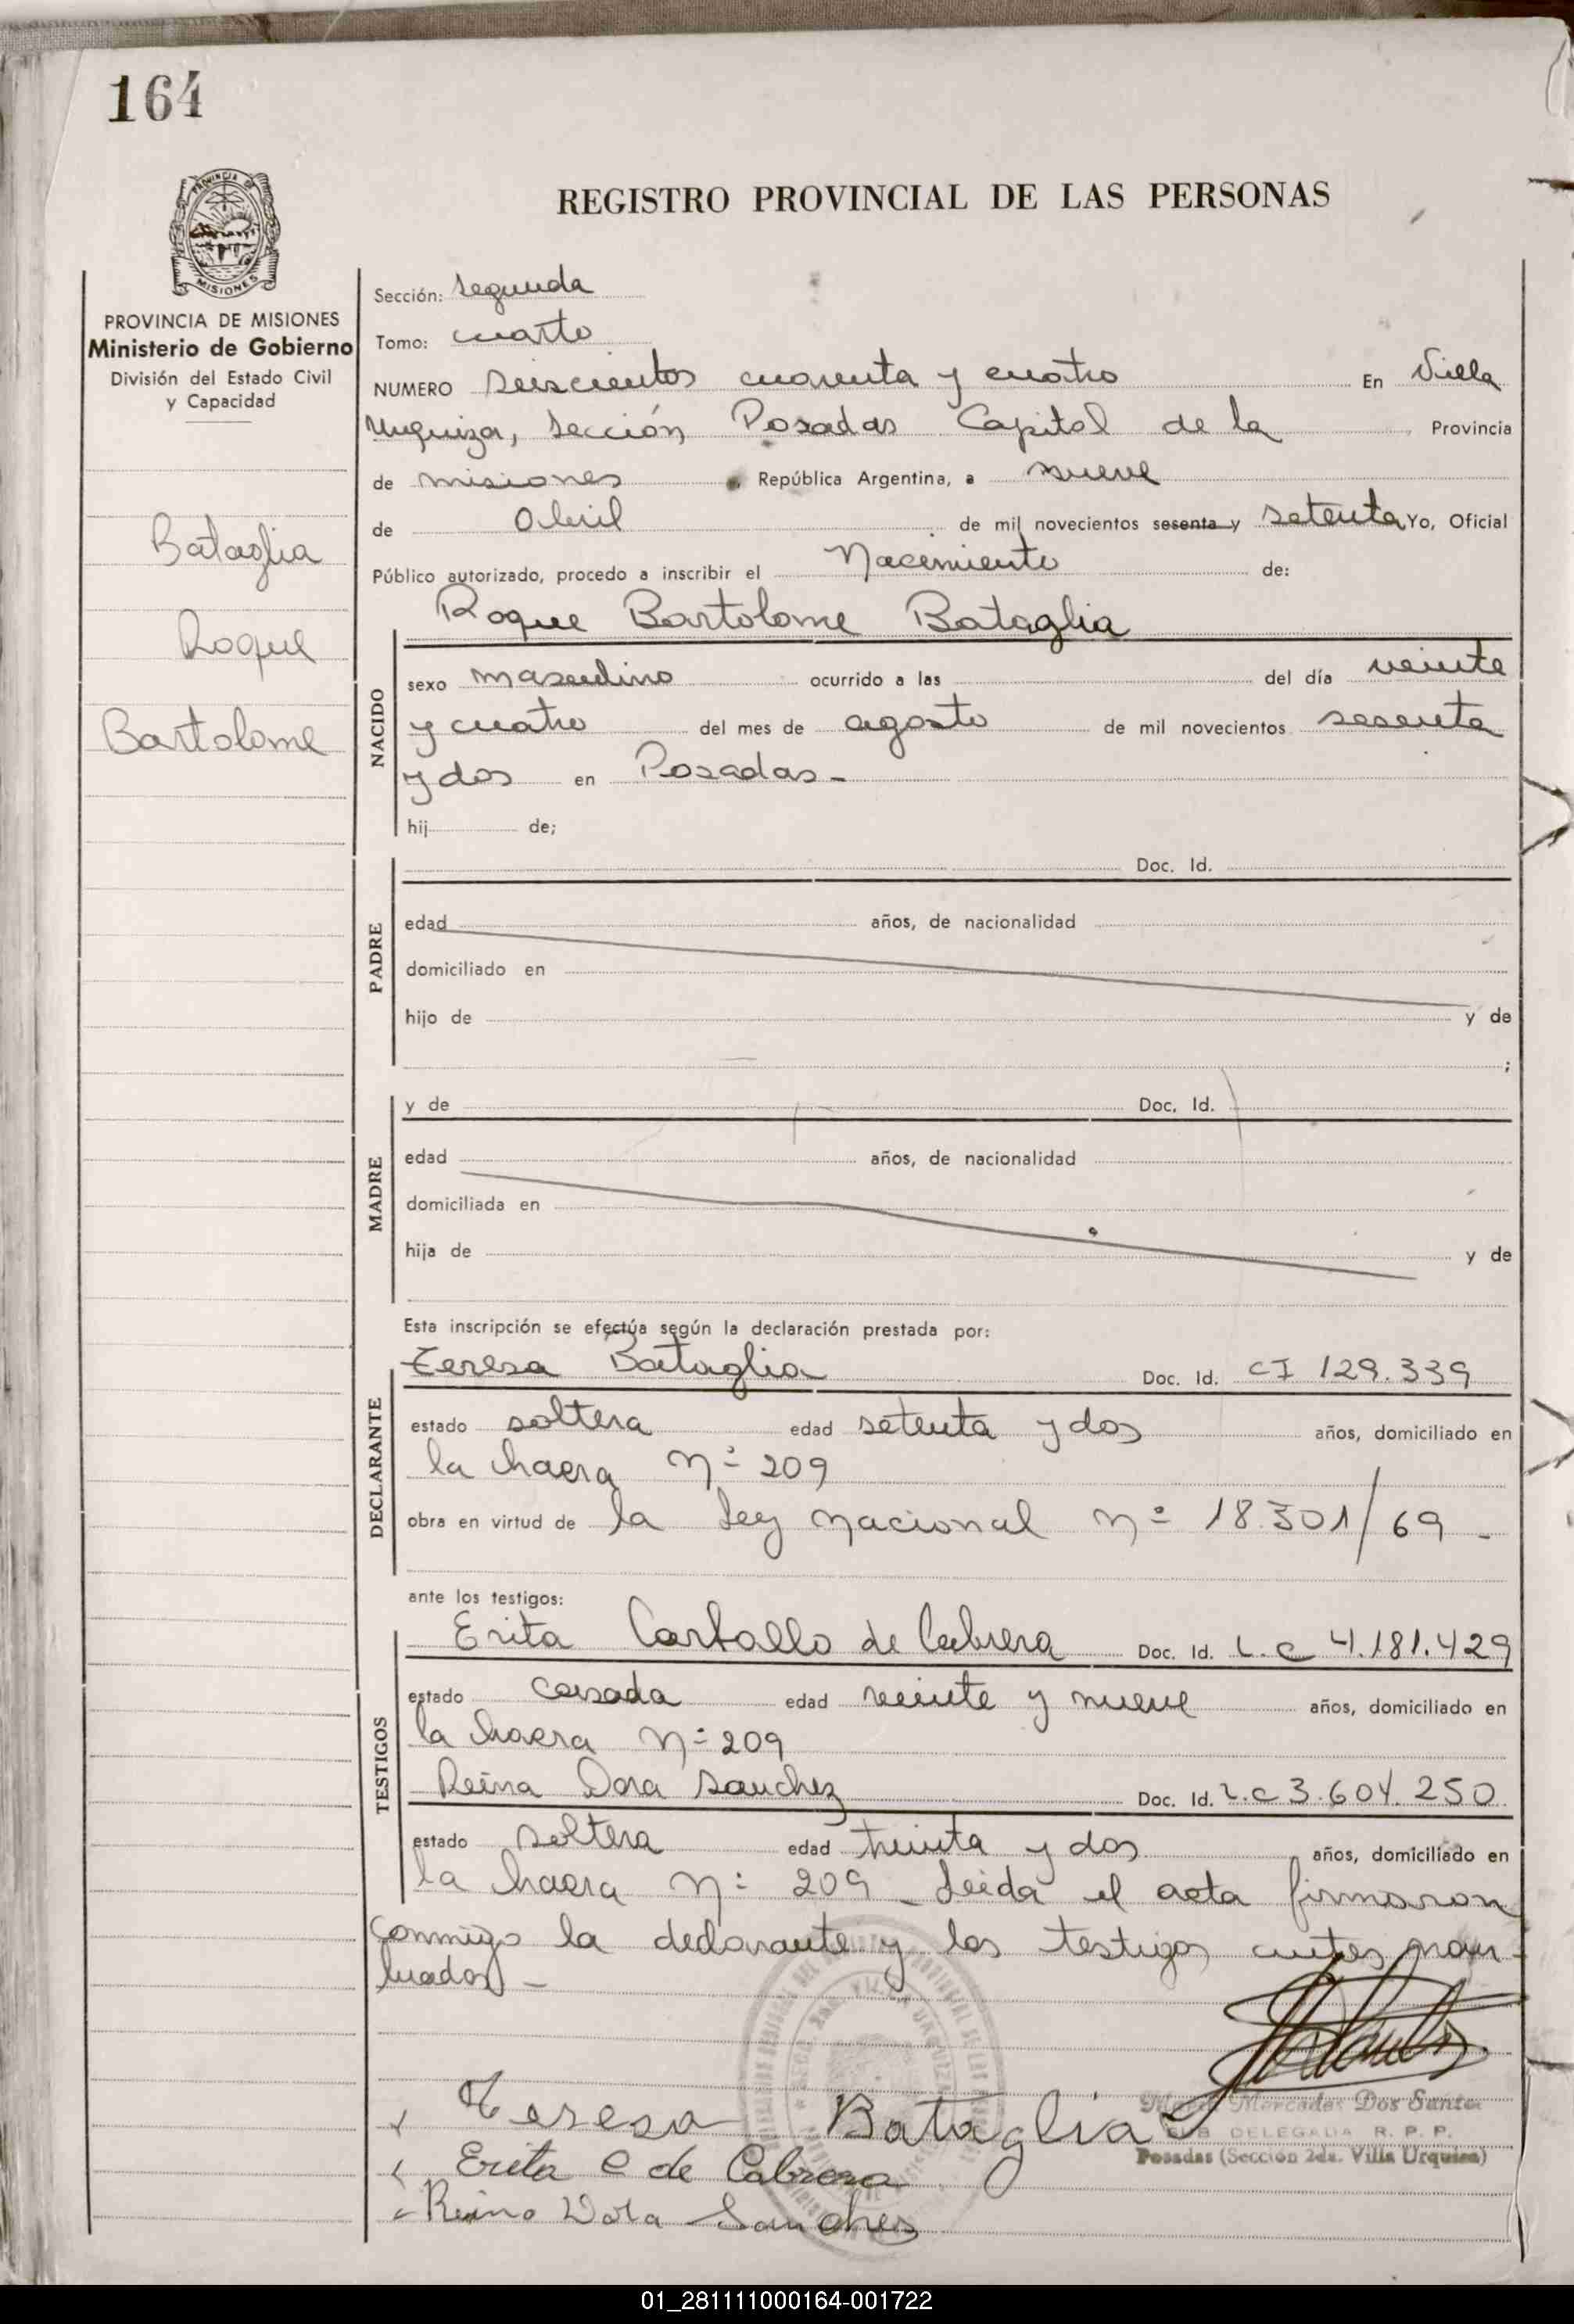 164
REGISTRO PROVINCIAL DE LAS PERSONAS
PROVINCIA DE
MISIONES
PROVINCIA DE MISIONES
Ministerio de Gobierno
División del Estado Civil
y Capacidad
Bataglia
Roque
Bartolome
Sección: Segunda
Tomo: cuarto
NUMERO Seiscientos cuarenta y cuatro En Villa
Urquiza, Sección Posadas Capital de la Provincia
de misiones, República Argentina, a nueve
de Abril de mil novecientos sesenta y setenta Yo, Oficial
Público autorizado, procedo a inscribir el Nacimiento de:
Roque Bartolome Bataglia
NACIDO
sexo masculino ocurrido a las del día veinte
y cuatro del mes de agosto de mil novecientos sesenta
y dos en Posadas -
hij de;
PADRE
Doc. Id.
edad años, de nacionalidad
domiciliado en
hijo de y de
;
MADRE
y de Doc. Id.
edad años, de nacionalidad
domiciliada en
hija de y de
Esta inscripción se efectúa según la declaración prestada por:
DECLARANTE
Teresa Bataglia Doc. Id. CI 129.339
estado soltera edad setenta y dos años, domiciliado en
la chacra Nº 209
obra en virtud de la Ley Nacional Nº 18.301/69 -
ante los testigos:
TESTIGOS
Erita Carballo de Cabrera Doc. Id. L.C 4.181.429
estado casada edad veinte y nueve años, domiciliado en
la chacra Nº 209
Reina Dora Sanchez Doc. Id. L.C 3.604.250
estado soltera edad treinta y dos años, domiciliado en
la chacra Nº 209 - Leida el acta firmaron
conmigo la declarante y los testigos antes
Mercedes Dos Santos
SUB DELEGADA R. P. P.
Posadas (Sección 2da. Villa Urquiza)
Teresa Bataglia
Erita C de Cabrera
Reina Dora Sanches
01_281111000164-001722